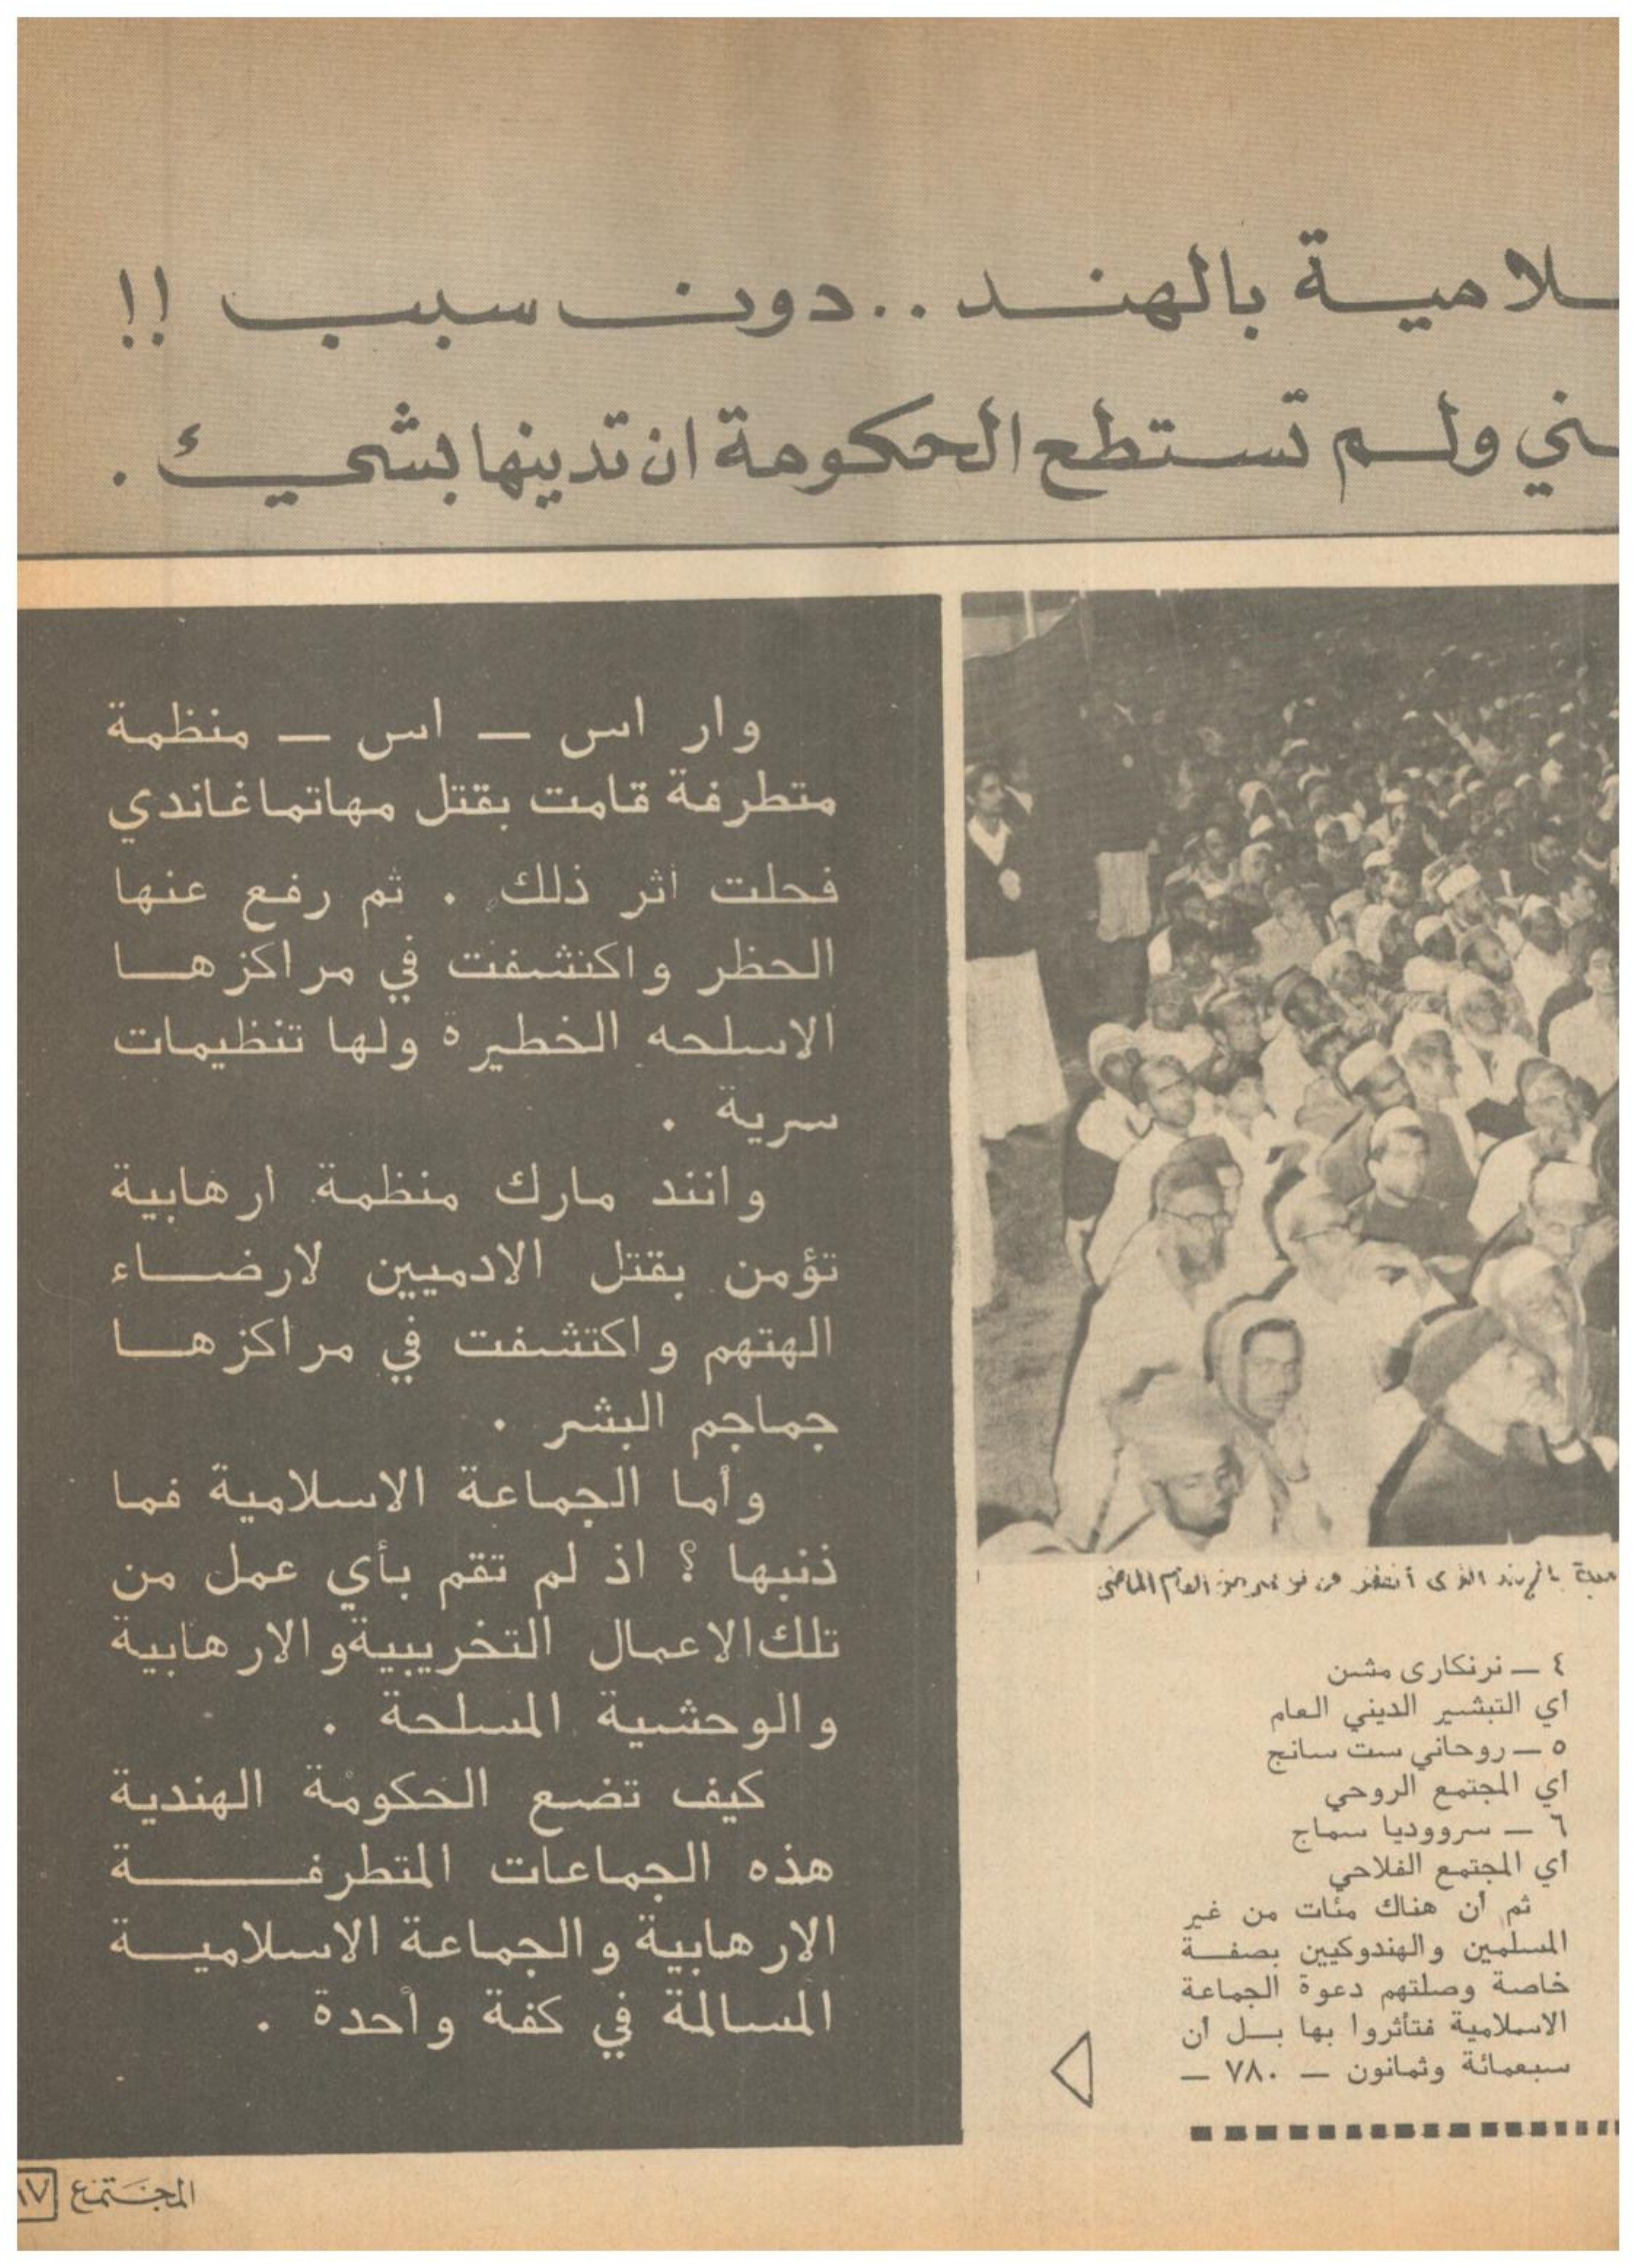 ـلامية بالهند..دون سبب !!
ـني ولم تستطع الحكومة ان تدينها بشيء .
الذي
العام الماضي
٤ — نرنكارى مشن
أي التبشير الديني العام
٥ — روحاني ست سانج
أي المجتمع الروحي
٦ — سرووديا سماج
أي المجتمع الفلاحي
ثم أن هناك مئات من غير
المسلمين والهندوكيين بصفة
خاصة وصلتهم دعوة الجماعة
الاسلامية فتأثروا بها بل أن
سبعمائة وثمانون — ٧٨٠ —
وار اس — اس — منظمة
متطرفة قامت بقتل مهاتماغاندي
فحلت اثر ذلك . ثم رفع عنها
الحظر واكتشفت في مراكزها
الاسلحه الخطيرة ولها تنظيمات
سرية .
وانند مارك منظمة ارهابية
تؤمن بقتل الادميين لارضاء
الهتهم واكتشفت في مراكزها
جماجم البشر .
وأما الجماعة الاسلامية فما
ذنبها ؟ اذ لم تقم بأي عمل من
تلك الاعمال التخريبية والارهابية
والوحشية المسلحة .
كيف تضع الحكومة الهندية
هذه الجماعات المتطرفة
الارهابية والجماعة الاسلامية
المسالمة في كفة واحدة .
المجتمع ١٧